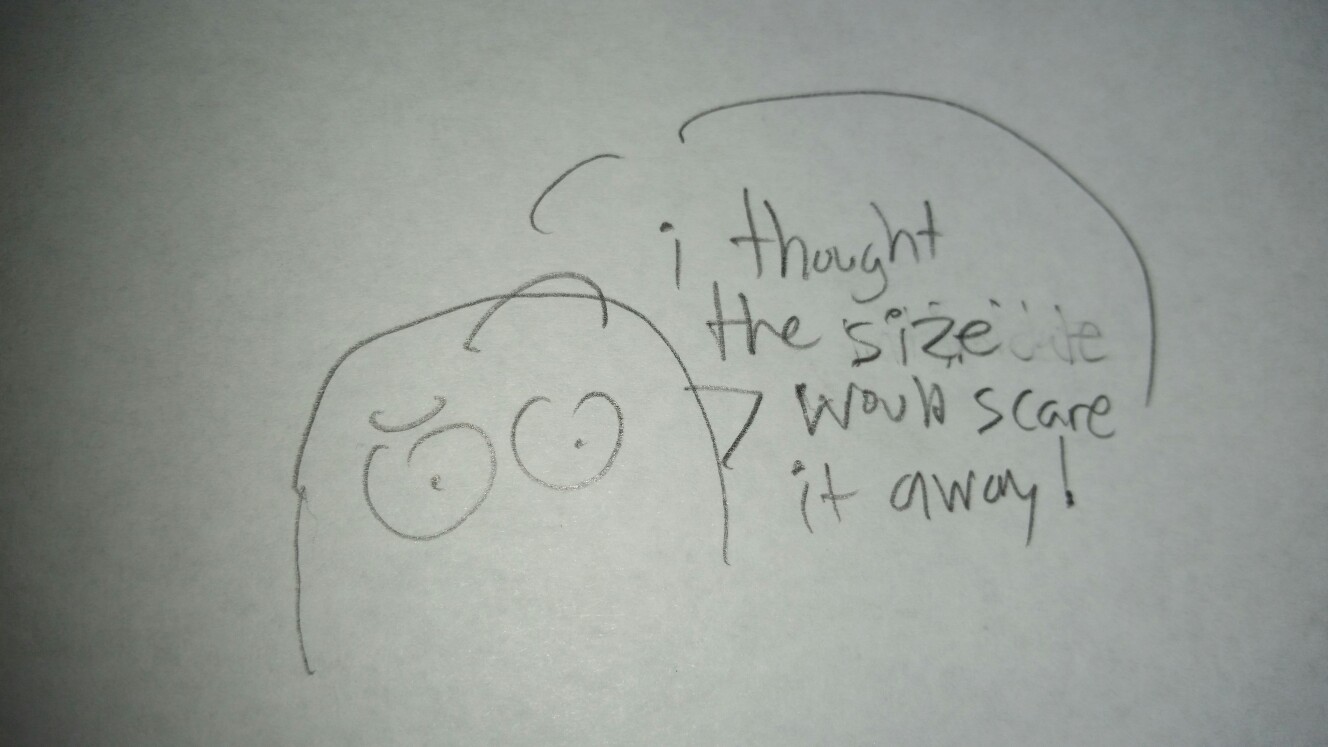 i thought
the size
would scare
it away!